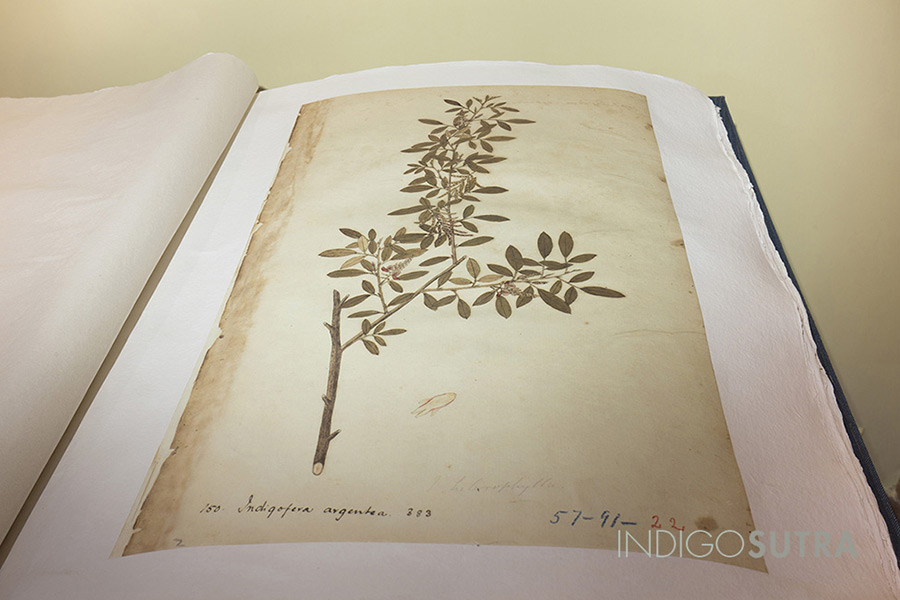 150. Indigofera argentea. 383
57-91-22,
2
INDIGOSUTRA